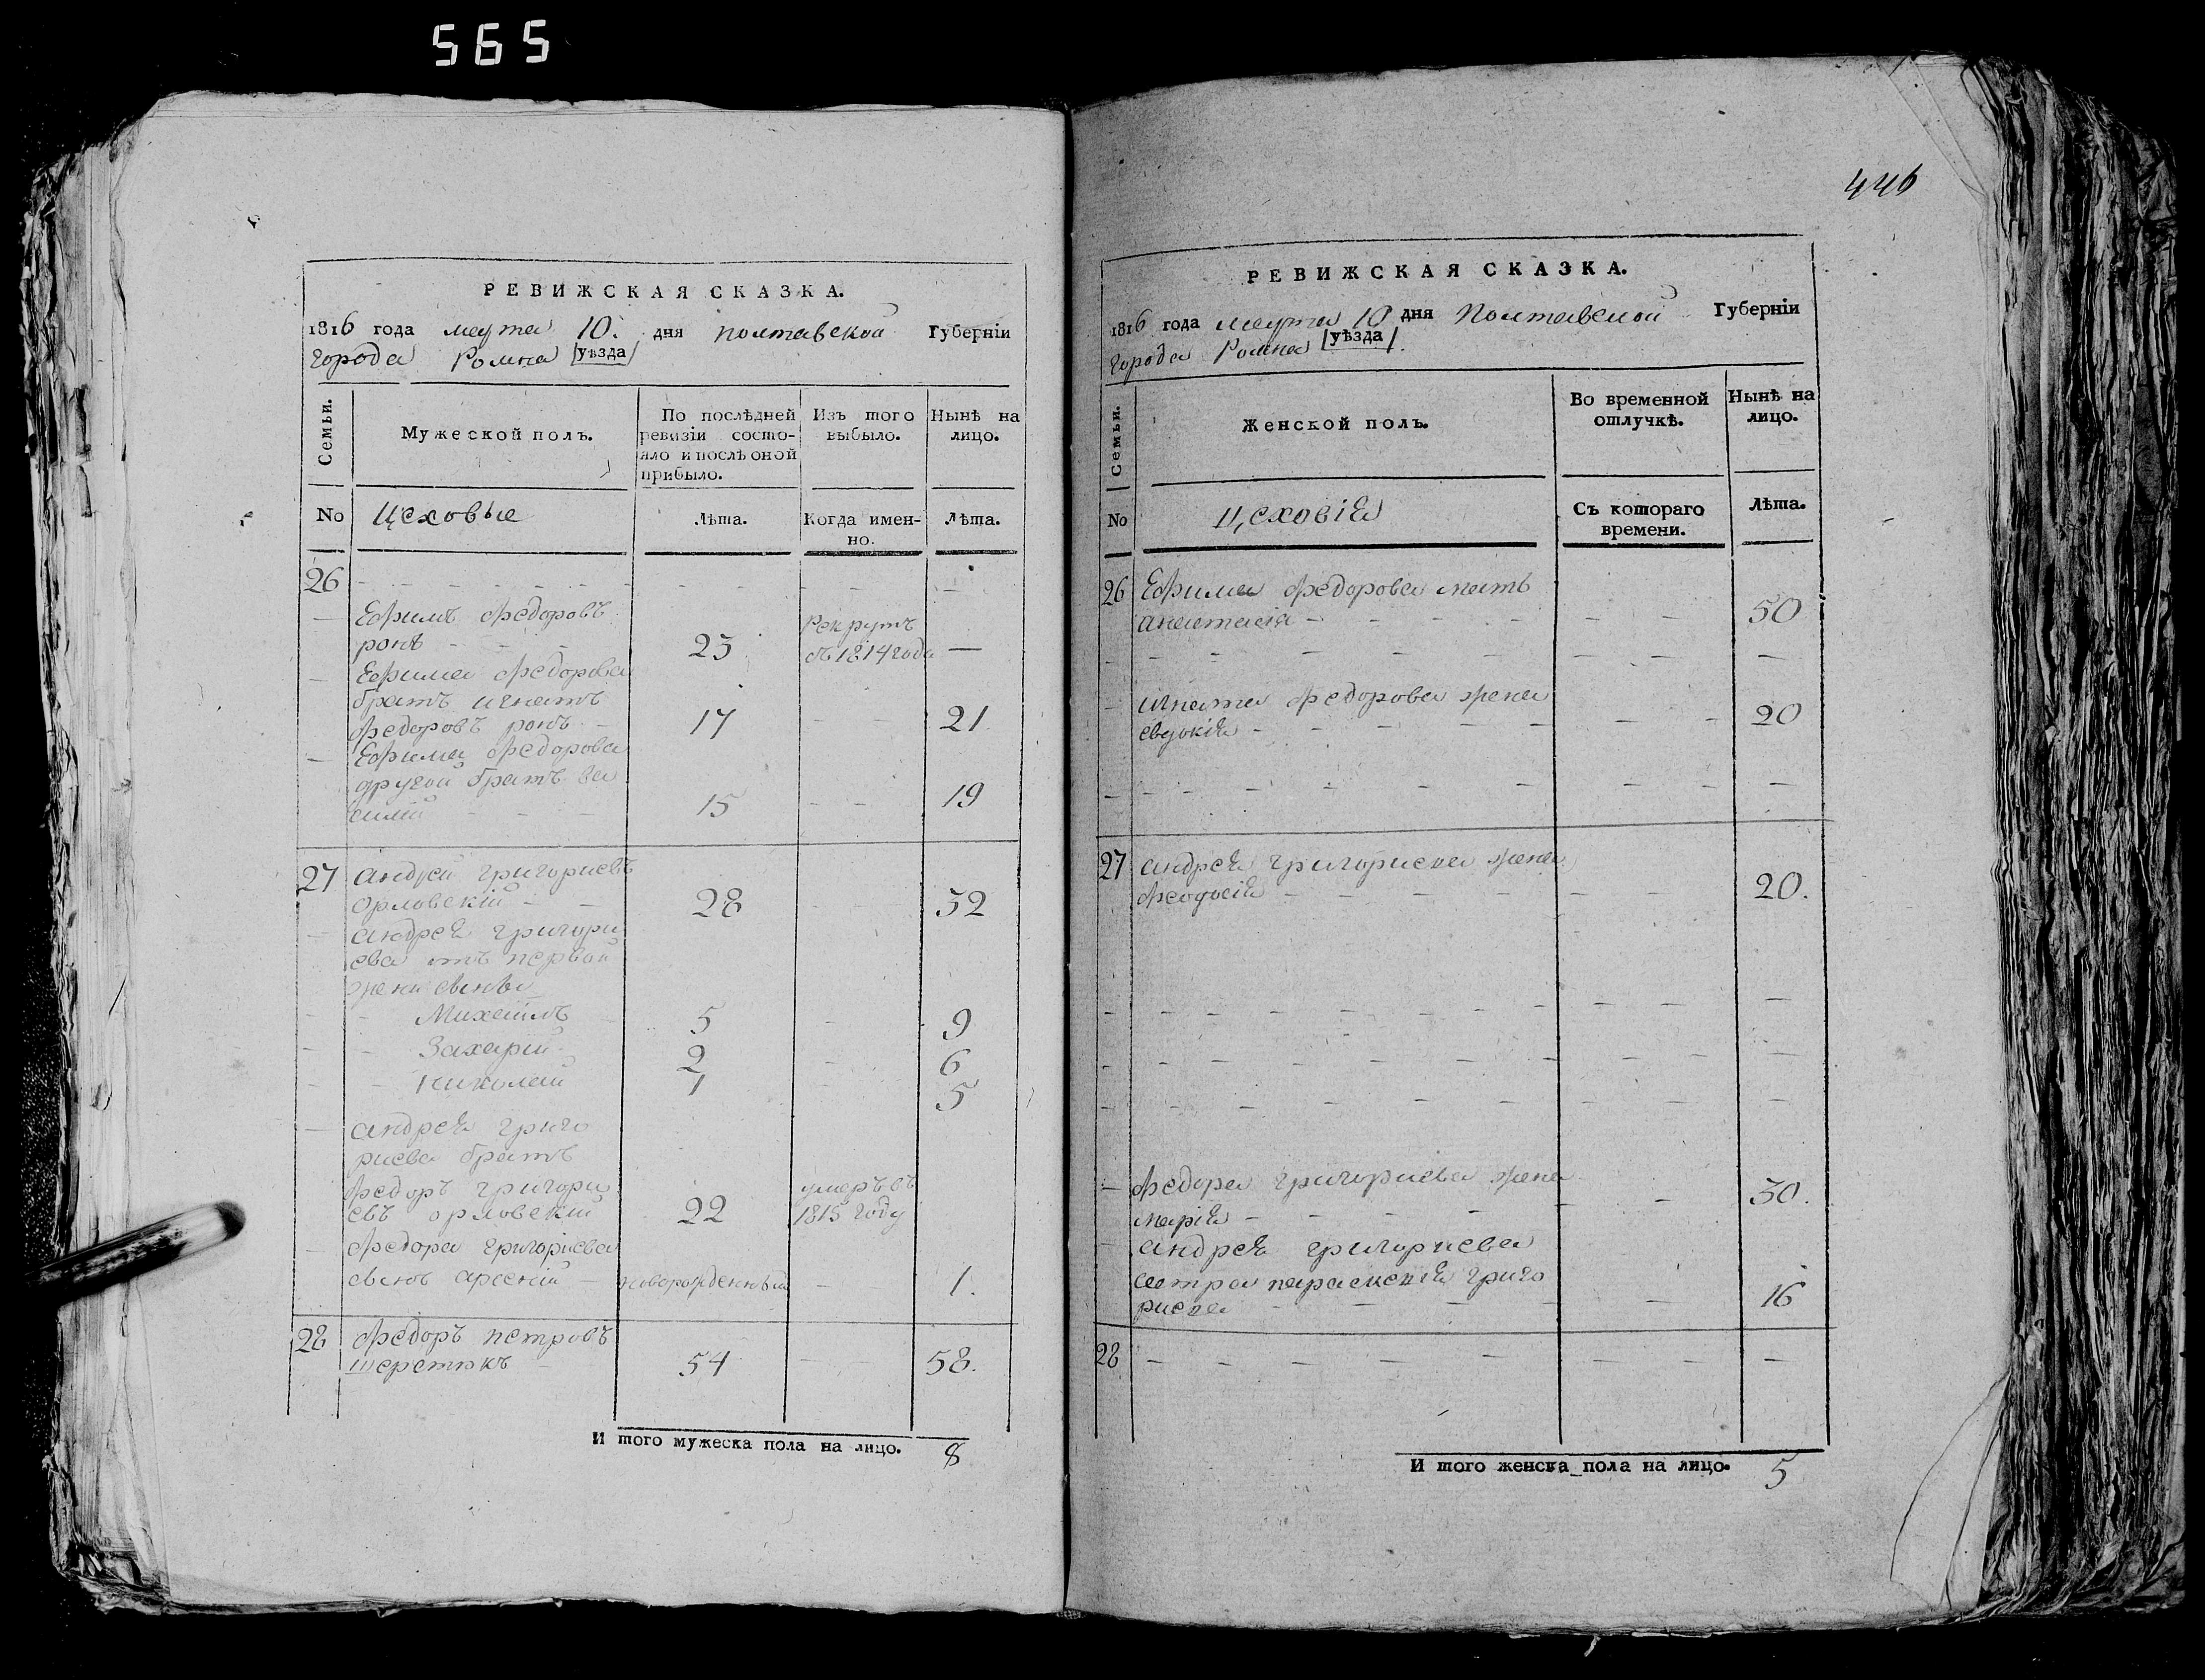 565
РЕВИЖСКАЯ СКАЗКА.
1816 года марта 10. дня полтавской Губерніи
города Ромна уѣзда
Семьи.
Мужеской полъ.
По послѣдней ревизіи состояло и послѣ оной прибыло.
Изъ того выбыло.
Нынѣ на лицо.
No
Цеховые
Лѣта.
Когда именно.
Лѣта.
26
Ефимъ Федоровъ
23
Рекрутъ
съ 1814 года
Ефима Федорова
братъ игнатъ
федоровъ
17
21
Ефима Федорова
другой братъ ва
силій
15
19
27 андрей григориевъ
орловскій
28
32
андрея григори
ева отъ первой
жени сынъи
Михаилъ 5 9
Захарій 2 6
николай 1 5
андрея григо
риева братъ
федоръ григори
евъ орловскій
22
умеръ въ
1815 году
федора григориева
сынъ арсеній новорожденный 1.
28 федоръ петровъ
шеретюкъ 54 58.
И того мужеска пола на лицо. 8
446
РЕВИЖСКАЯ СКАЗКА.
1816 года марта 10 дня Полтавской Губерніи
города Ромна уѣзда
Семьи.
Женской полъ.
Во временной отлучкѣ.
Нынѣ на лицо.
No
цеховія
Съ котораго времени.
Лѣта.
26 Ефима федорова мать
анастасія 50
игната федорова жена
евдокія 20
27 андрея григориева жена
феодосія 20.
федора григориева жена
марія 30.
андрея григориева
сестра параскевія григо
риева 16
28
И того женска пола на лицо. 5